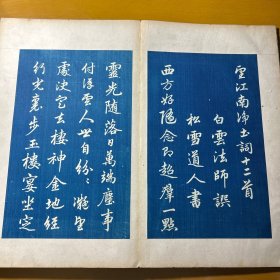 望江南净土詞十二首
白雲法師譔
松雪道人書
西方好隨念即超羣一點
靈光随落日萬端塵事
付浮雲人世自紛〻凝望
處決定去棲神金地經
行光裏步玉樓宴坐定